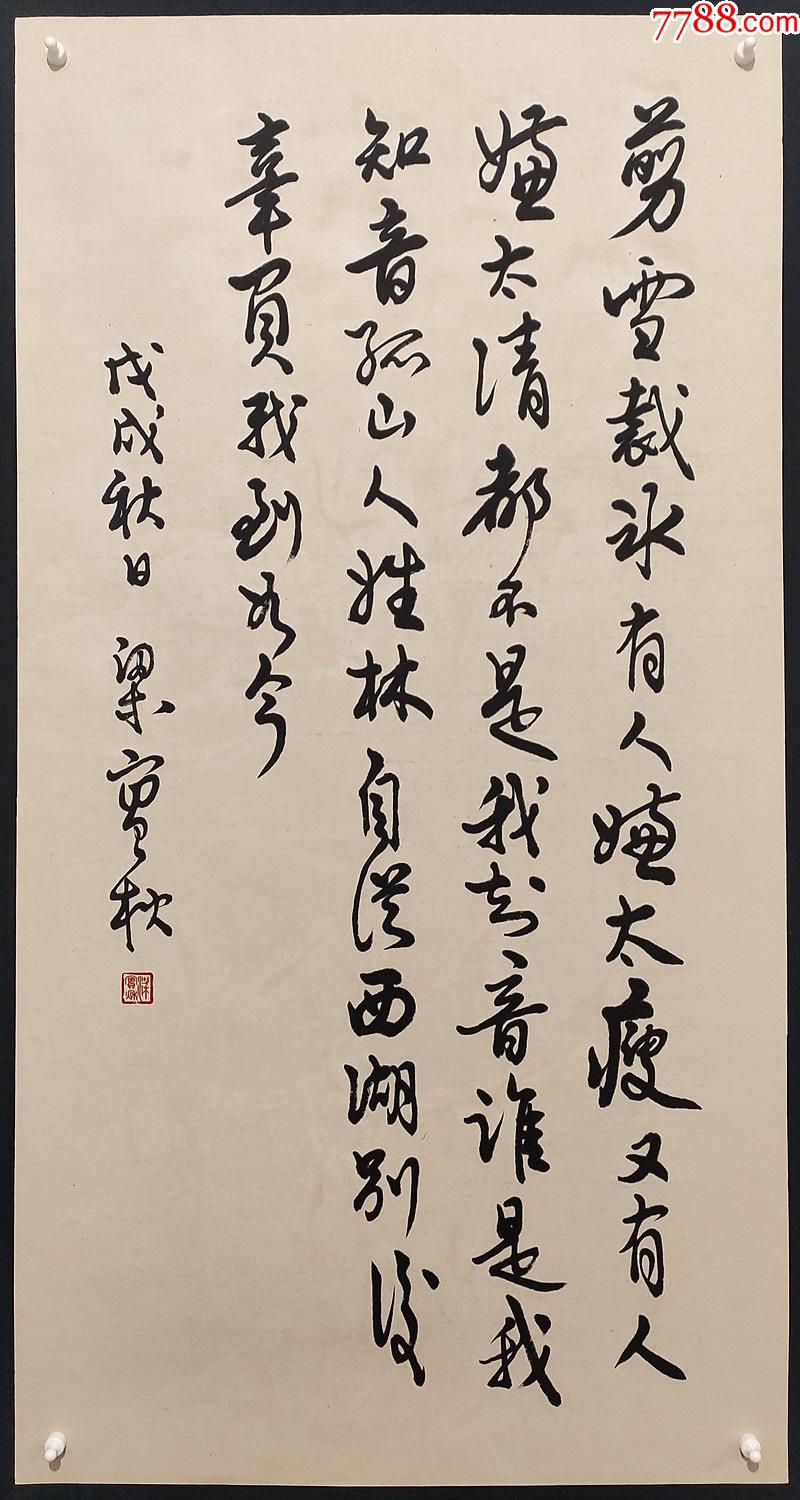 7788.com
剪雪裁冰有人嫌太瘦又有人
嫌太清都不是我知音谁是我
知音孤山人姓林自從西湖别後
辜負我到如今
戊戌秋日 梁實秋